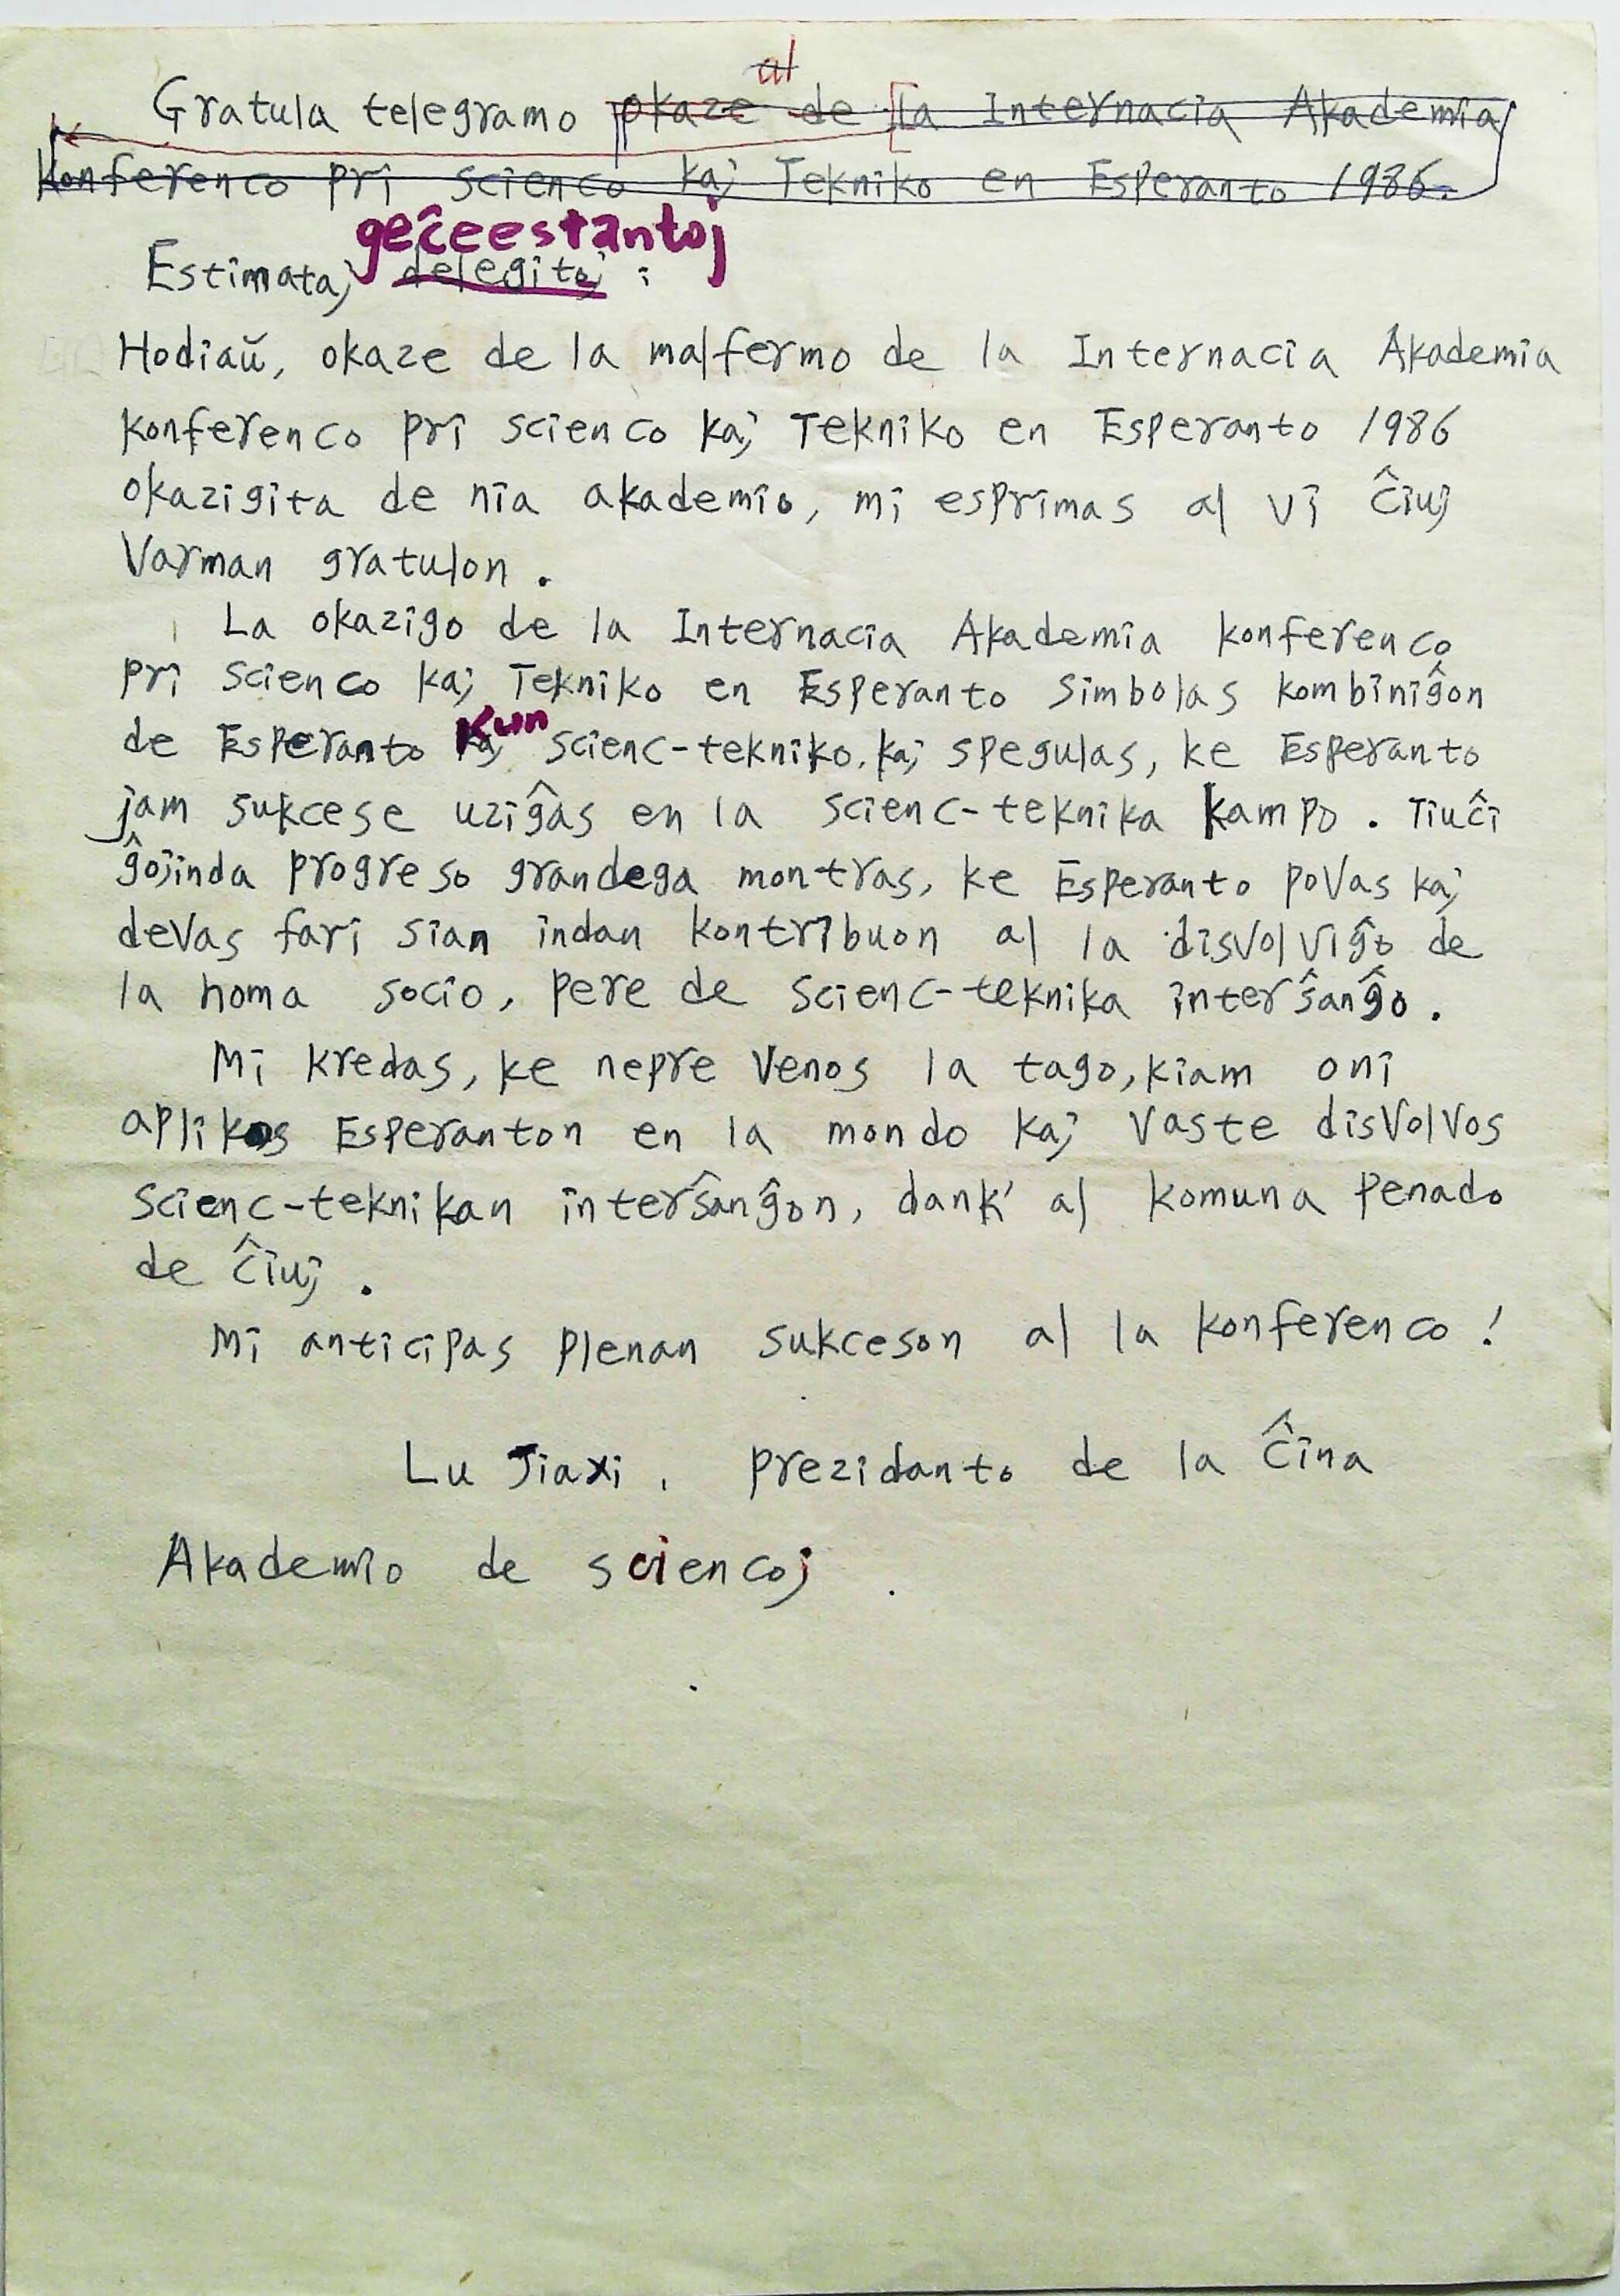 al
Gratula telegramo okaze de la Internacia Akademia
Konferenco pri scienco kaj Tekniko en Esperanto 1986.
geĉeestantoj
Estimataj delegitoj :
Hodiaŭ, okaze de la malfermo de la Internacia Akademia
konferenco pri scienco kaj Tekniko en Esperanto 1986
okazigita de nia akademio, mi esprimas al vi ĉiuj
Varman gratulon.
La okazigo de la Internacia Akademia konferenco
pri scienco kaj Tekniko en Esperanto simbolas kombiniĝon
kun
de Esperanto kaj scienc-tekniko, kaj spegulas, ke Esperanto
jam sukcese uziĝas en la scienc-teknika kampo. Tiuĉi
ĝojinda progreso grandega montras, ke Esperanto povas kaj
devas fari sian indan kontribuon al la disvolviĝo de
la homa socio, pere de scienc-teknika interŝanĝo.
Mi kredas, ke nepre venos la tago, kiam oni
aplikos Esperanton en la mondo kaj vaste disvolvos
scienc-teknikan interŝanĝon, dank' al komuna penado
de ĉiuj.
Mi anticipas plenan sukceson al la konferenco!
Lu Jiaxi, prezidanto de la Ĉina
Akademio de sciencoj